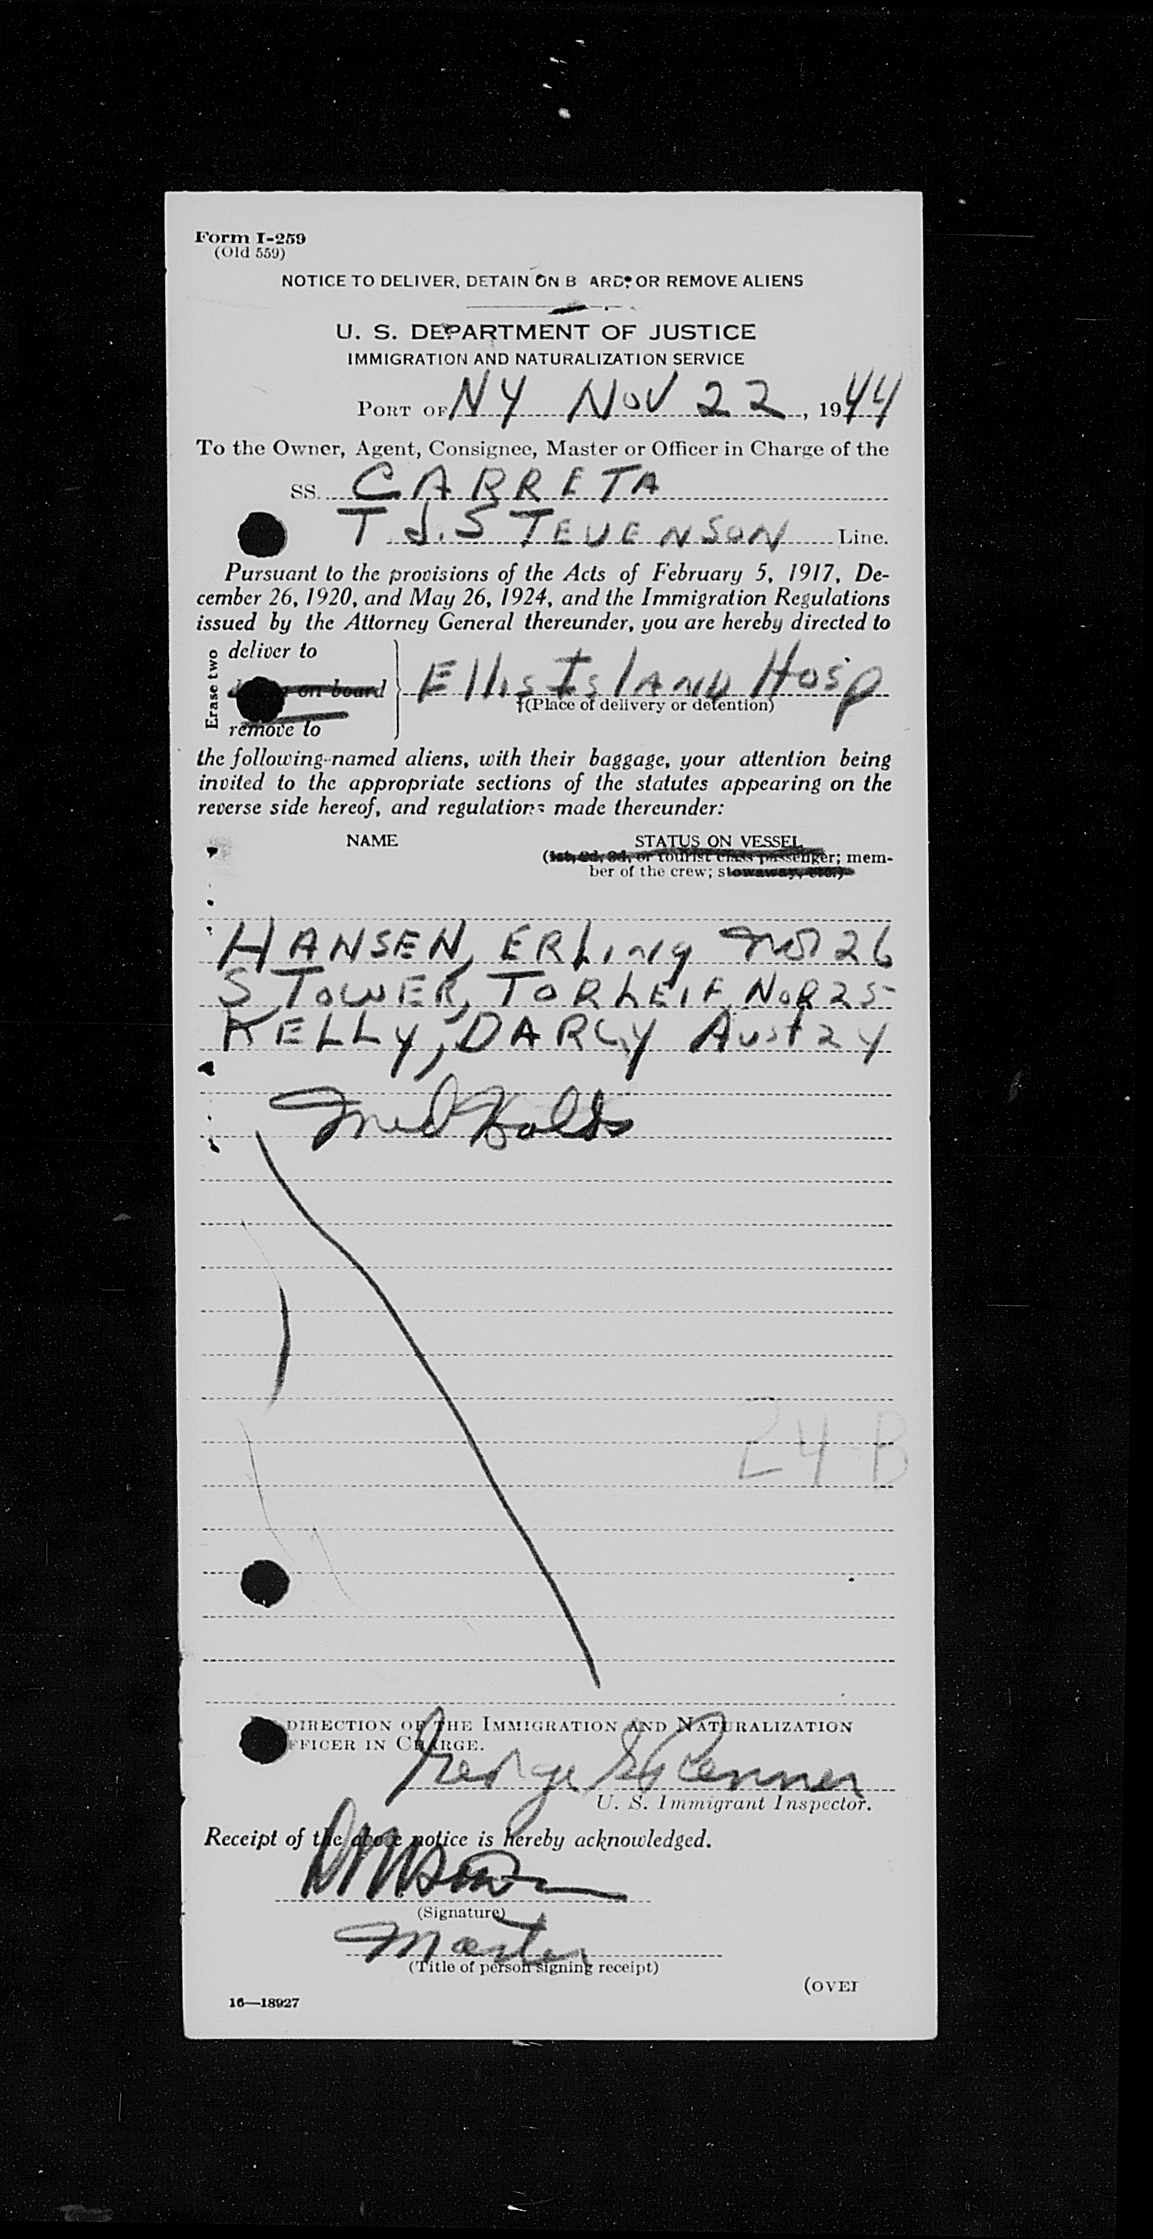 Form I-259
(Old 559)
NOTICE TO DELIVER, DETAIN ON B ARD, OR REMOVE ALIENS
U. S. DEPARTMENT OF JUSTICE
IMMIGRATION AND NATURALIZATION SERVICE
PORT OF NY NOV 22, 1944
To the Owner, Agent, Consignee, Master or Officer in Charge of the
SS. CARRETA
T.J.STEVENSON Line.
Pursuant to the provisions of the Acts of February 5, 1917, De-
cember 26, 1920, and May 26, 1924, and the Immigration Regulations
issued by the Attorney General thereunder, you are hereby directed to
Erase two
deliver to
on board
Ellis Island Hosp
†(Place of delivery or detention)
remove to
the following-named aliens, with their baggage, your attention being
invited to the appropriate sections of the statutes appearing on the
reverse side hereof, and regulations made thereunder:
NAME STATUS ON VESSEL
(1st, 2d, 3d, or tourist class passenger; mem-
ber of the crew; stowaway, etc.)
HANSEN, ERLING NOR 26
STOWER, TORLEIF NOR 25
KELLY, DARCY Aust 24
Med Holds
24 B
DIRECTION OF THE IMMIGRATION AND NATURALIZATION
FFICER IN CHARGE.
George Renner
U. S. Immigrant Inspector.
Receipt of the above notice is hereby acknowledged.
(Signature)
Master
(Title of person signing receipt)
(OVER
16—18927